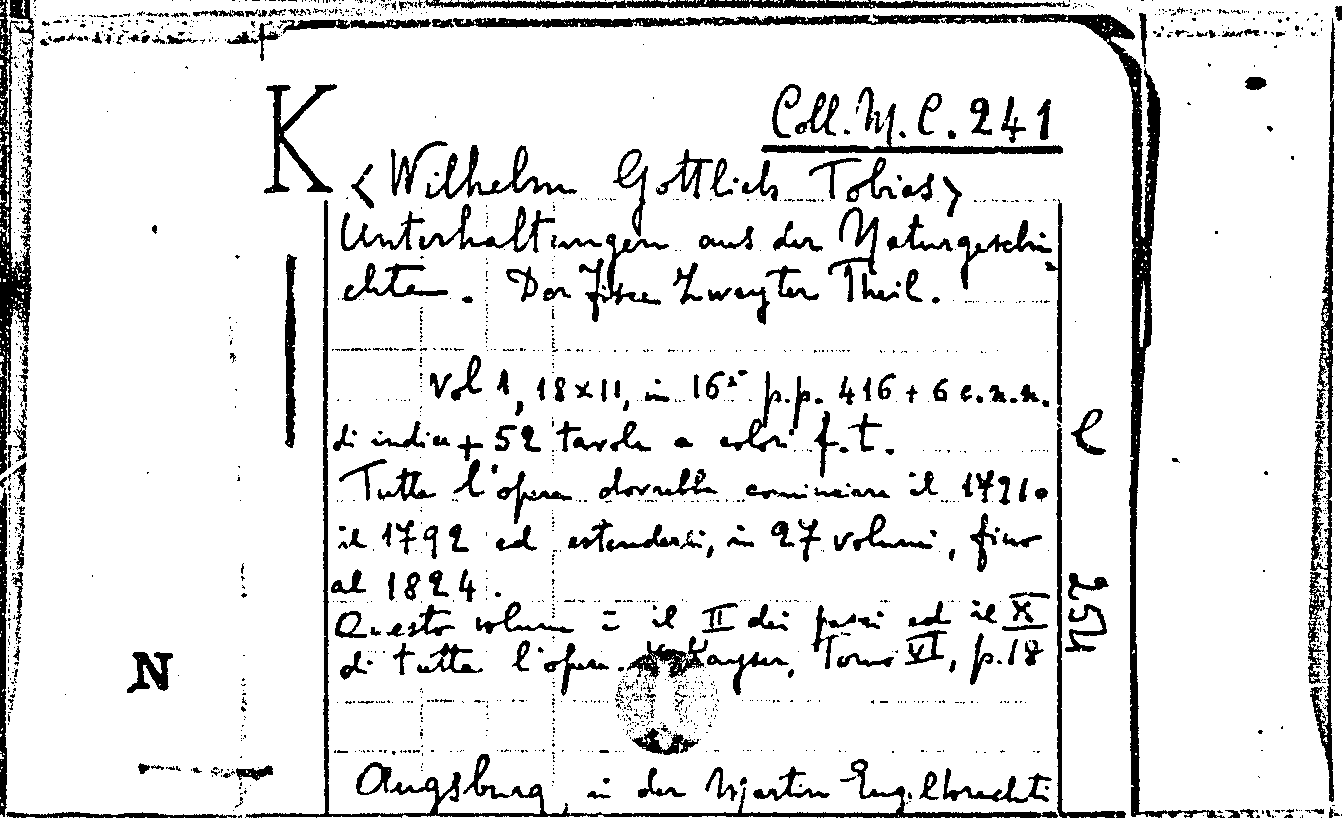 K
Coll. M. C. 241
<Wilhelm Gottlieb Tobias>
Unterhaltungen aus der Naturgeschi-
chten. Der Fische Zweyter Theil.
vol 1, 18x11, in 16° p.p. 416 + 6 c.n.n.
di indice + 52 tavole a colori f.t.
Tutta l'opera dovrebbe cominciare il 1791 o
il 1792 ed estendersi, in 27 volumi, fino
al 1824.
Questo volume è il II dei pesci ed il X
di tutta l'opera. Kayser, Tomo VI, p. 18
Augsburg, in der Martin Engelbrechti
e
254
N